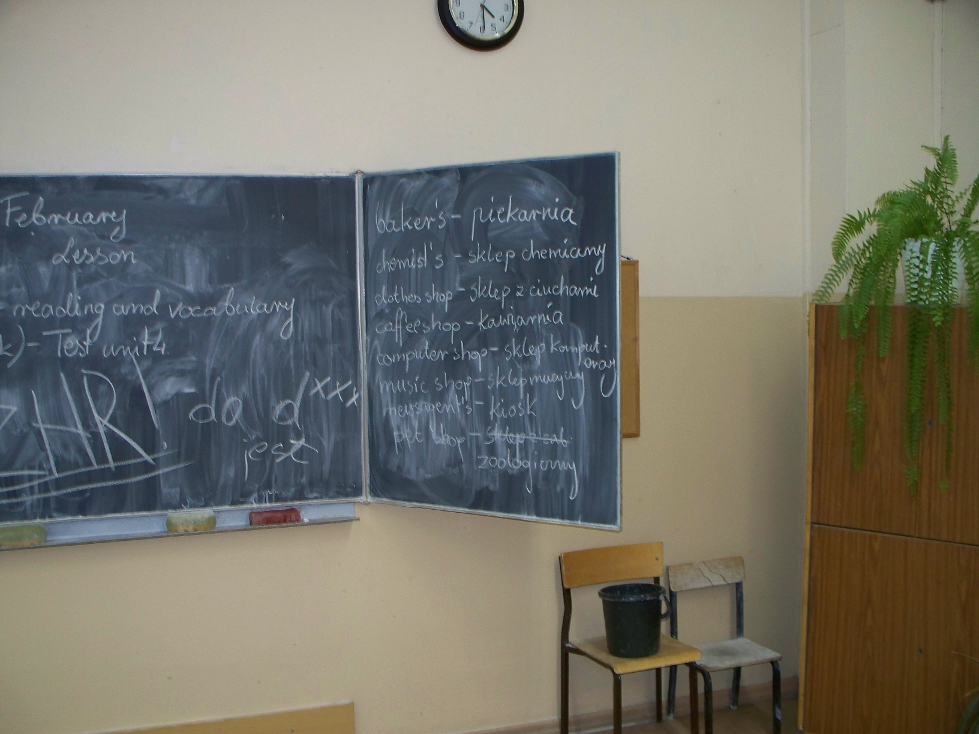 February
Lesson
- reading and vocabulary
k) - Test unit 4
ZHR! da dxxx
jest
baker's - piekarnia
chemist's - sklep chemiczny
clothes shop - sklep z ciuchami
caffeeshop - kawiarnia
computer shop - sklep komput.
orowy
music shop - sklep muzyczny
newsagent's - kiosk
pet shop - sklep
zoologiczny